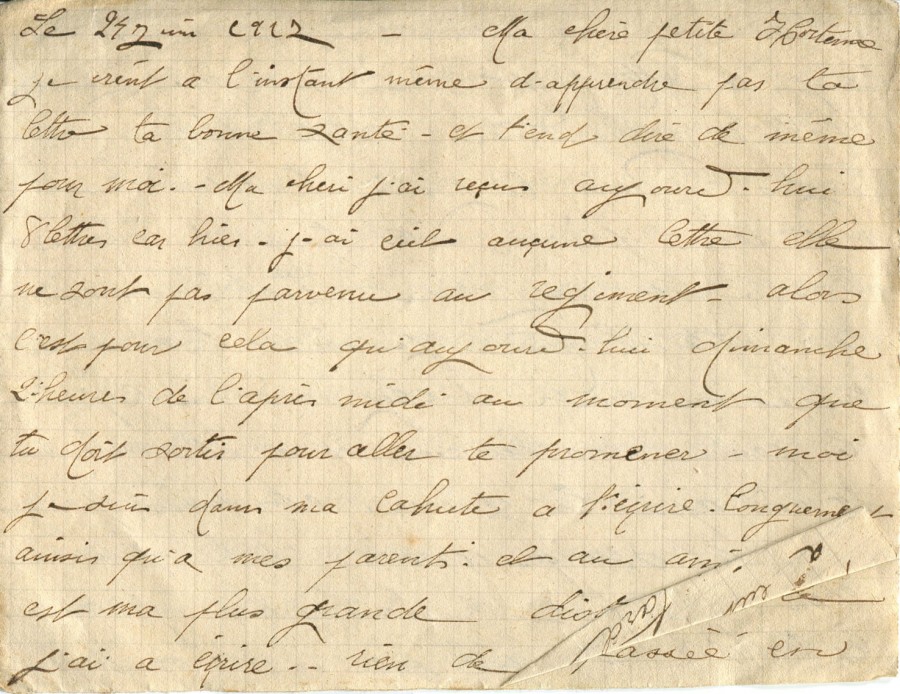 Le 24 juin 1917 - Ma chère petite Hortense
je vient a l'instant même d'apprendre pas ta
lettre ta bonne santé - et t'end dire de même
pour moi. - Ma cheri j'ai reçus aujourd-hui
8 lettres car hier - j-ai aucune lettre elle
ne sont pas parvenu au regiment - alors
c'est pour cela qu'aujourd-hui dimanche
2 heures de l'après midi au moment que
tu doit sortir pour aller te promener - moi
je suis dans ma cahute a t'écrire. longuement
ainsis qu'a mes parent. et au ami.
est ma plus grande
j'ai a écrire -- rien de cassée en